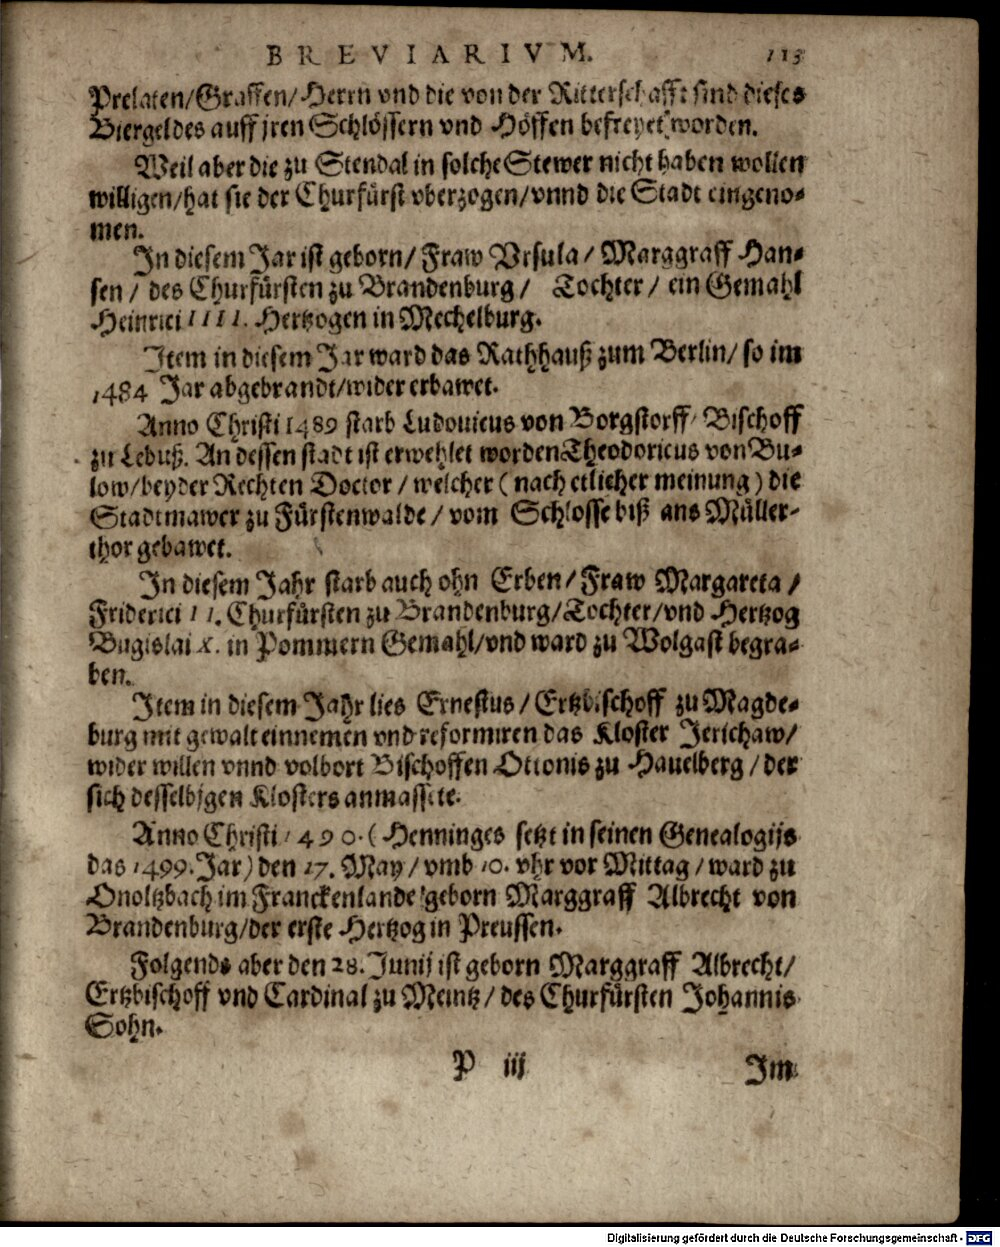 BREVIARIVM. 113
Prelaten/Graffen/Herrn vnd die von der Ritterschafft sind dieses
Biergeldes auff jren Schlössern vnd Höffen befreyet worden.
Weil aber die zu Stendal in solche Stewer nicht haben wollen
willigen/hat sie der Churfürst vberzogen/vnnd die Stadt eingeno-
men.
In diesem Jar ist geborn/ Fraw Vrsula/ Marggraff Han-
sen/ des Churfürsten zu Brandenburg/ Tochter/ ein Gemahl
Heinrici IIII. Hertzogen in Mechelburg.
Item in diesem Jar ward das Rathhauß zum Berlin/ so im
1484 Jar abgebrandt/wider erbawet.
Anno Christi 1489 starb Ludouicus von Borgstorff/ Bischoff
zu Lebuß. An dessen stadt ist erwehlet worden Theodoricus von Bu-
low/beyder Rechten Doctor/ welcher (nach etlicher meinung) die
Stadtmawer zu Fürstenwalde/ vom Schlosse biß ans Müller-
thor gebawet.
In diesem Jahr starb auch ohn Erben/ Fraw Margareta/
Friderici II. Churfürsten zu Brandenburg/Tochter/vnd Hertzog
Bugislai X. in Pommern Gemahl/vnd ward zu Wolgast begra-
ben.
Item in diesem Jahr lies Ernestus/ Ertzbischoff zu Magde-
burg mit gewalt einnemen vnd reformiren das Kloster Jerichaw/
wider willen vnnd volbort Bischoffen Ottonis zu Hauelberg/ der
sich desselbigen Klosters anmassete.
Anno Christi 1490. (Henninges setzt in seinen Genealogijs
das 1499. Jar) den 17. May/ vmb 10. vhr vor Mittag/ ward zu
Onoltzbach im Franckenlande geborn Marggraff Albrecht von
Brandenburg/der erste Hertzog in Preussen.
Folgends aber den 28. Junij ist geborn Marggraff Albrecht/
Ertzbischoff vnd Cardinal zu Meintz/ des Churfürsten Johannis
Sohn.
P iij Im
Digitalisierung gefördert durch die Deutsche Forschungsgemeinschaft - DFG